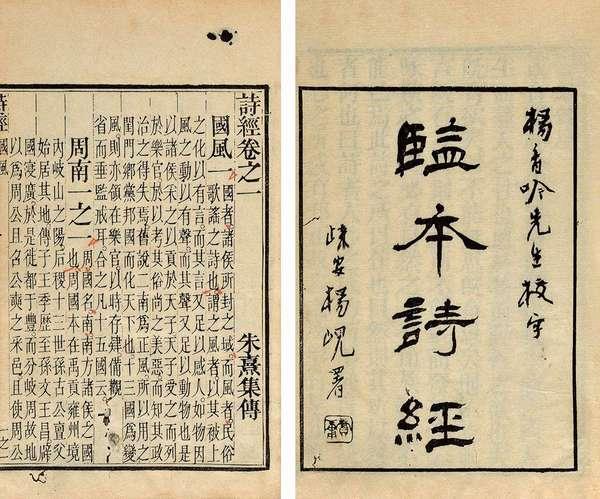 楊香吟先生校字
監本詩經
歸安楊峴署
詩經卷之一
朱熹集傳
國風一
國者諸侯所封之域而風者民俗
歌謠之詩也謂之風者以其被上
之化以有言而其言又足以感人如物因
風之動以有聲而其聲又足以動物也是
以諸侯采之以貢於天子天子受之而列
於樂官於以考其俗尚之美惡而知其政
治之得失焉舊說二南為正風所以用之
閨門鄉黨邦國而化天下也十三國為變
風則亦領在樂官以時存肄備觀
省而垂監戒耳合之凡十五國云
周南一之一
周國名南南方諸侯之國
也周國本在禹貢雍州境
內岐山之陽后稷十三世孫古公亶父
始居其地傳子王季歷至孫文王昌辟
國寖廣於是徙都于豐而分岐周故地
以為周公旦召公奭之采邑且使周公
詩經 國風